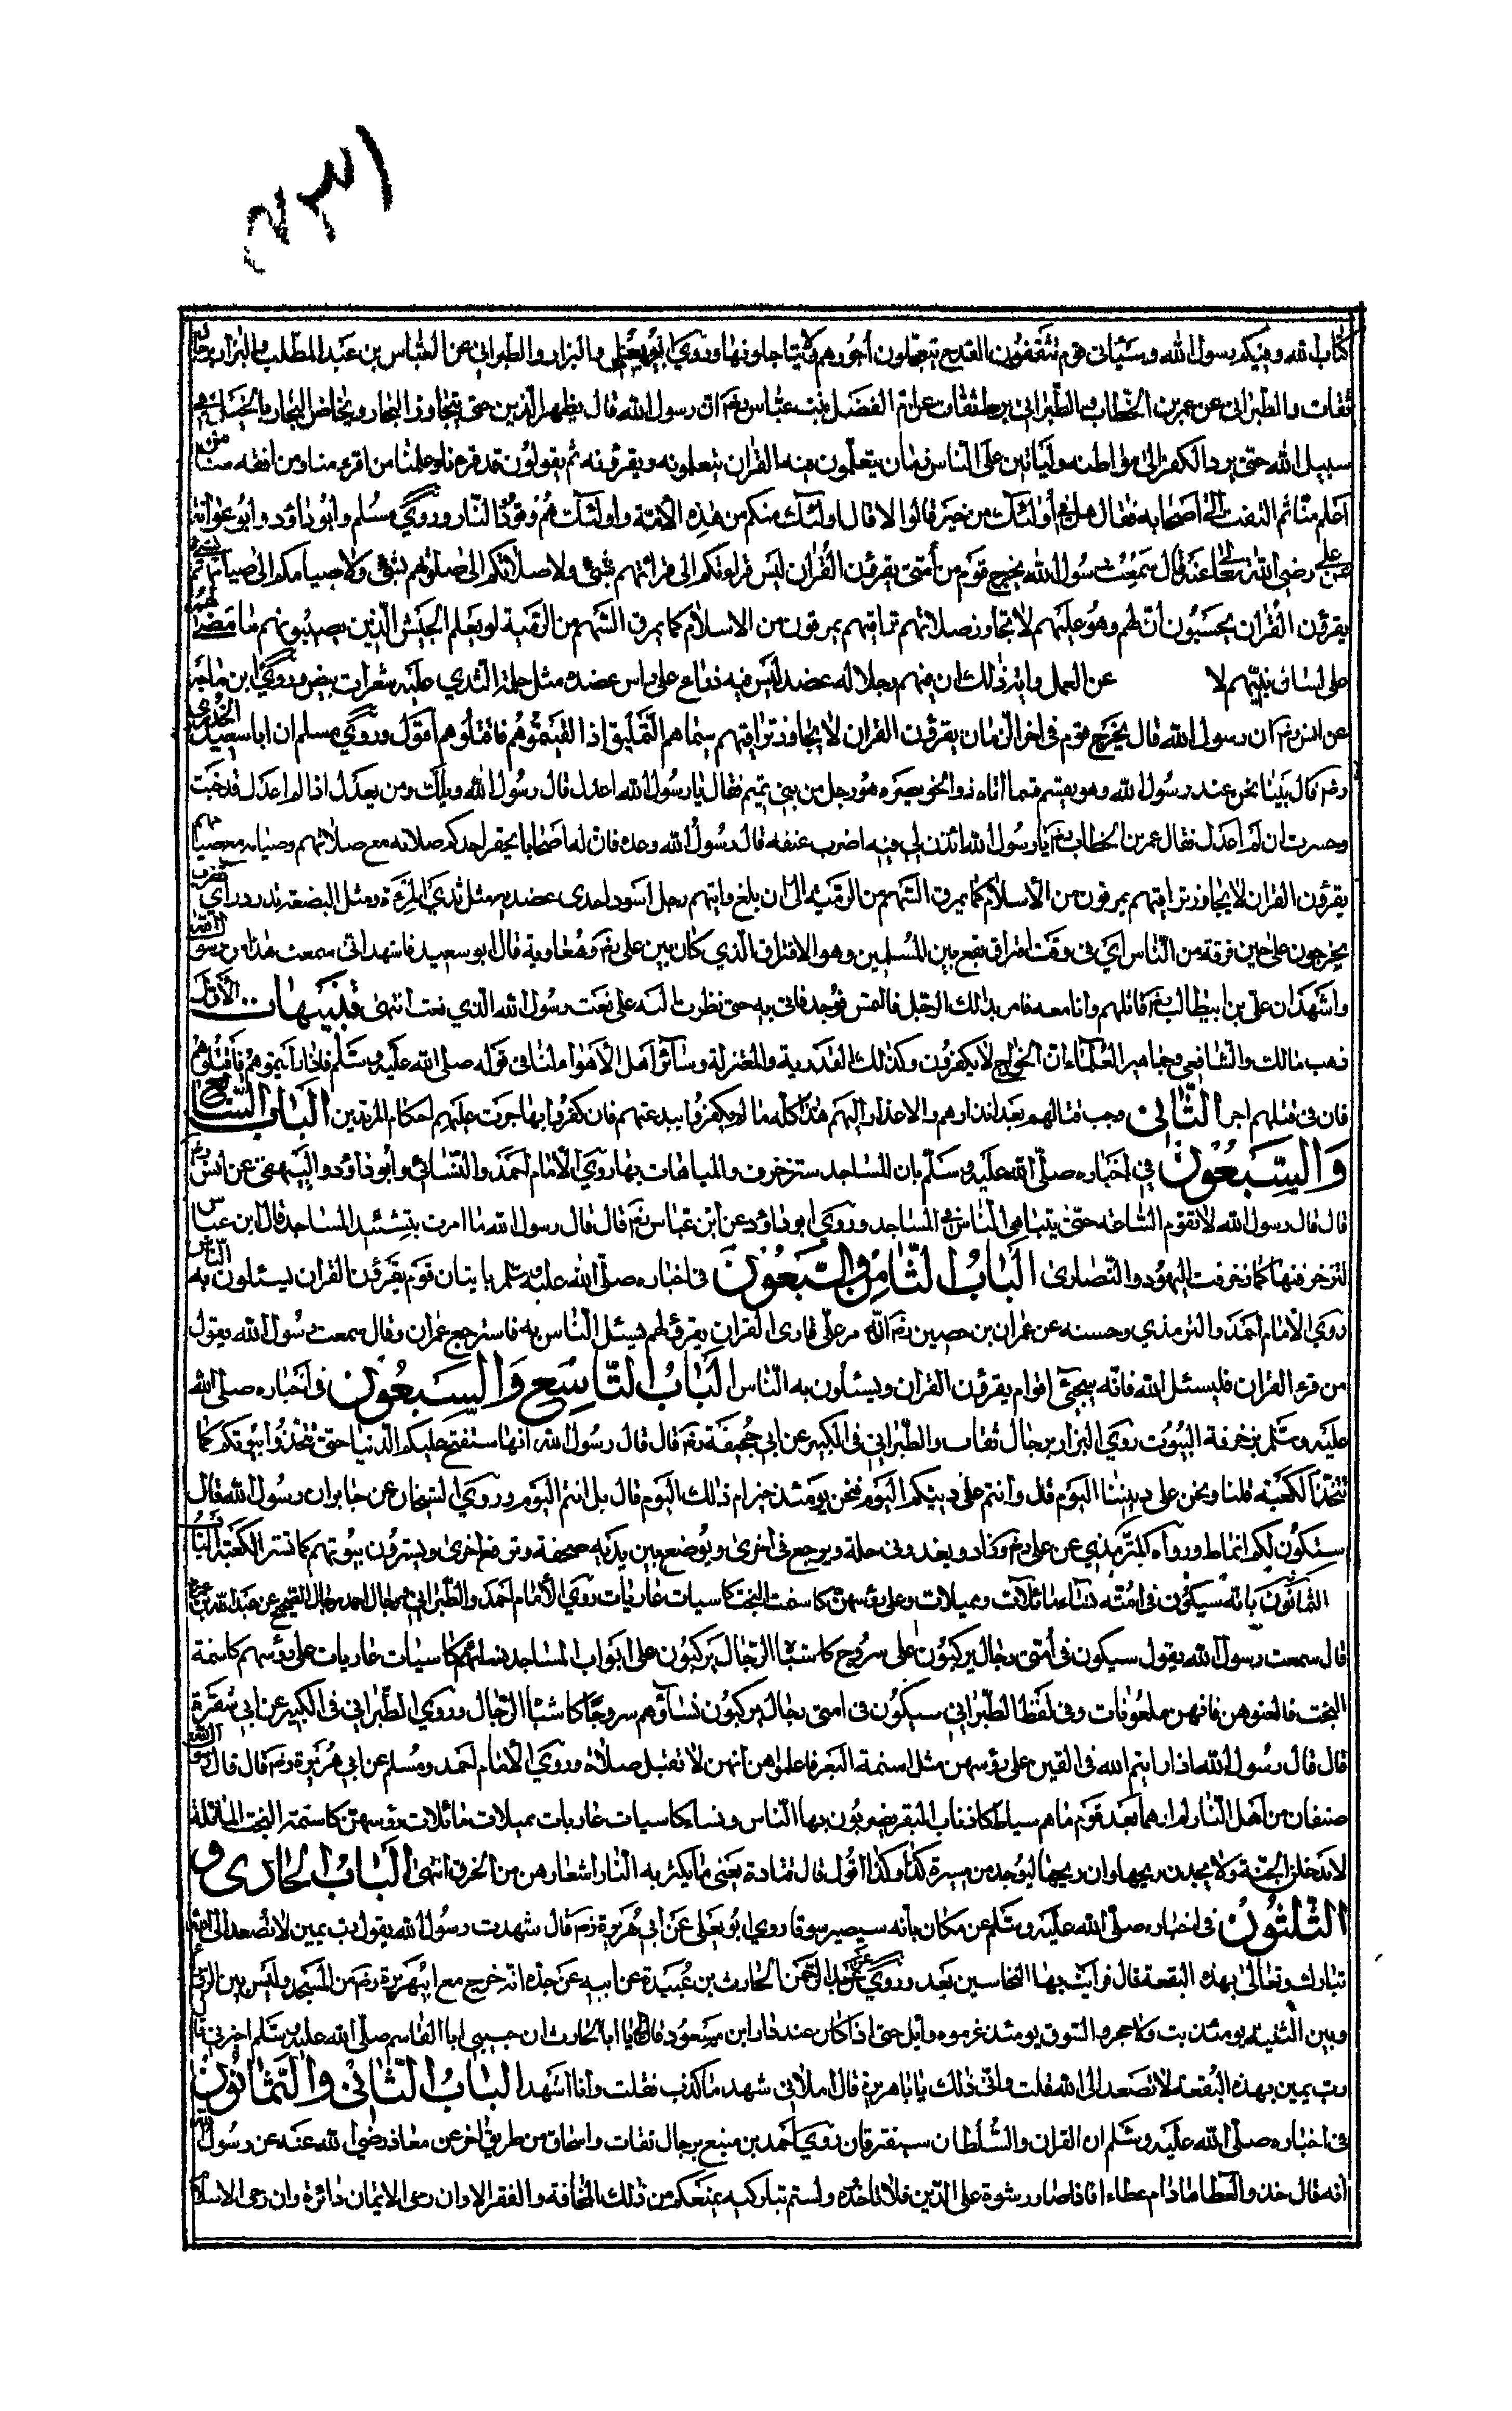 كتاب الله وفيكم رسول الله وسيأتي قوم يثقفون القدح يتعجلون أجورهم ولا يتأجلونها وروي أبو يعلى والبزار والطبراني عن العباس بن عبد المطلب والبزار برجال
ثقات والطبراني عن عمر بن الخطاب والطبراني برجال ثقات عن أم الفضل بنت عباس رضم ان رسول الله قال يظهر الدين حتى يتجاوز البحار ويخاض البحار بالخيل في
سبيل الله حتى يرد الكفر إلى مواطنه وليأتين على الناس زمان يتعلمون فيه القران يتعلمونه ويقرؤنه ثم يقولون قد قرءنا وعلمنا من اقرء منا ومن افقه منا من
اعلم منا ثم التفت إلى أصحابه فقال هل في أولئك من خير قالوا لا قال اولئك منكم من هذه الأمة وأولئك هم وقود النار وروي مسلم وأبو داؤد وأبو عوانة
عن علي رضي الله تعالى عنه قال سمعت رسول الله يخرج قوم من أمتي يقرؤن القران ليس قراءتكم الى قراءتهم بشئ ولا صلاتكم إلى صلاتهم بشئ ولا صيامكم إلى صيامهم بشئ
يقرؤن القران يحسبون أنه لهم وهو عليهم لا تجاوز صلاتهم تراقيهم يمرقون من الاسلام كما يمرق السهم من الرمية لو يعلم الجيش الذين يصيبونهم ما قضى لهم
على لسان نبيهم لا عن العمل وايٓة ذلك ان فيهم رجلا له عضد ليس فيه ذراع على راس عضده مثل حلمة الثدي عليه شعرات بيض وروي ابن ماجه
عن انس رضم ان رسول الله قال يخرج قوم في اخر الزمان يقرؤن القران لا يجاوز تراقيهم سيماهم التحليق اذا لقيتموهم فاقتلوهم أقول وروي مسلم ان ابا سعيد الخدري
رضم قال بينا نحن عند رسول الله وهو يقسم قسما اتاه ذو الخويصره هو رجل من بني تميم فقال يا رسول الله اعدل قال رسول الله ويلك ومن يعدل اذا لم اعدل قد خبت
وخسرت ان لم اعدل فقال عمر بن الخطاب رضم يا رسول الله ائذن لي فيه اضرب عنقه قال رسول الله دعه فان له اصحابا يحقر احدكم صلاته مع صلاتهم وصيامه مع صيامهم
يقرؤن القران لا يجاوز تراقيهم يمرقون من الأسلام كما يمرق السهم من الرمية الى ان بلغ وايتهم رجل اسود احدى عضديه مثل ثدي المرءة ومثل البضعة تدردر أي تضطرب
يخرجون على حين فرقة من الناس اي في وقت افتراق يقع بين المسلمين وهو الافتراق الذي كان بين علي رضم ومعاوية قال ابو سعيد فاشهد اني سمعت هذا من رسول الله
واشهد ان علي بن ابيطالب رضم قاتلهم وانا معه فامر بذلك الرجل فالتمس فوجد فاتي به حتى نظرت اليه على نعت رسول الله الذي نعت انتهى تنبيهات الأول
ذهب مالك والشافعي وجماهير العلماء ان الخوارج لا يكفرون وكذلك القدرية والمعتزلة وسائر أهل الأهواء أما قوله صلى الله عليه وسلم فاذا رأيتموهم فاقتلوهم
فان في قتلهم اجرا الثاني وجب قتالهم بعد انذارهم والاعذار اليهم هذا كله ما لم يكفروا ببدعتهم فان كفروا بها جرت عليهم احكام المرتدين الباب السابع
والسبعون في اخباره صلى الله عليه وسلم بان المساجد ستزخرف والمباهات بها روي الأمام أحمد والنسائي وأبو داؤد والبيهقي عن انس رضم
قال قال رسول الله لا تقوم الساعة حتى يتباهي الناس في المساجد وروي ابو داؤد عن ابن عباس رضم قال قال رسول الله ما امرت بتشئيد المساجد قال ابن عباس
لتزخرفنها كما زخرفت اليهود والنصارى الباب الثامن والسبعون في اخباره صلى الله عليه وسلم باتيان قوم يقرؤن القران يسئلون به الناس
روي الأمام أحمد والترمذي وحسنه عن عمران بن حصين رضم انه مر على قارى القران يقرء لهم يسئل الناس به فاسترجع عمران وقال سمعت رسول الله يقول
من قرء القران فليسئل الله فانه سيجئ اقوام يقرؤن القران ويسئلون به الناس الباب التاسع والسبعون في اخباره صلى الله
عليه وسلم بزخرفة البيوت روي البزار برجال ثقات والطبراني في الكبير عن ابي جحيفة رضم قال قال رسول الله انها ستفتح عليكم الدنيا حتى تنجدوا بيوتكم كما
تنجد الكعبة قلنا ونحن على ديننا اليوم قال وأنتم على دينكم اليوم فنحن يومئذ خير ام ذلك اليوم قال بل انتم اليوم وروي الشيخان عن جابر ان رسول الله قال
ستكون لكم انماط ورواه الترمذي عن علي رضم وزاد ويغدو في حلة ويرجع في اخرى ويوضع بين يديه صحفة وترفع اخرى ويسترون بيوتهم كما تستر الكعبة الباب
الثمانون بأنه سيكون في امته نساء مائلات ومميلات وعلى رؤسهن كاسنمة البخت كاسيات عاريات روي الأمام احمد والطبراني برجال احمد رجال الصحيح عن عبد الله بن عمر
قال سمعت رسول الله يقول سيكون في أمتي رجال يركبون على سروج كاشباه الرجال يركبون على ابواب المساجد نسائهم كاسيات عاريات على رؤسهم كاسنمة
البخت فالعنوهن فانهن ملعونات وفي لفظ الطبراني سيكون في امتي رجال يركبون نساؤهم سروجا كاشباه الرجال وروي الطبراني في الكبير عن ابي شقرة
قال قال رسول الله اذا رايتم الله في القين على رؤسهن مثل اسنمة البعر فاعلموهن انهن لا تقبل صلاة وروي الأمام أحمد ومسلم عن ابي هريرة رضم قال قال رسول الله
صنفان من أهل النار لم ارهما بعد قوم معهم سياط كاذناب البقر يضربون بها الناس ونساء كاسيات عاريات مميلات مائلات رؤسهن كاسنمة البخت المائلة
لا تدخلن الجنة ولا يجدن ريحها وان ريحها ليوجد من مسيرة كذا وكذا اقول قال قتادة يعنى ما يكثر به النار اشعارهن من الخرق انتهى الباب الحادى و
الثلثون في اخباره صلى الله عليه وسلم عن مكان بأنه سيصير سوقا روي ابو يعلى عن ابي هريرة رضم قال شهدت رسول الله يقول رب يمين لا تصعد الى الله
تبارك وتعالى بهذه البقعة قال فرأيت بها النخاسين بعد وروي عن عبد الرحمن الحارث بن عبيدة عن ابيه عن جده انه خرج مع ابي هريرة رضم من المسجد وليس بين
وبين الثنية يومئذ بيت ولا حجر والسوق يومئذ حتى اذا كان عند دار ابن مسعود قال يا ابا الحارث ان حبيبي ابا القاسم صلى الله عليه وسلم اخبرني
رب يمين بهذه البقعة لا تصعد الى الله قلت واني ذلك يا ابا هريرة قال اما اني شهد ما كذب فقلت وانا اشهد الباب الثاني والثمانون
في اخباره صلى الله عليه وسلم ان القران والسلطان سيفترقان روي أحمد بن منيع برجال ثقات واسحاق من طريق اخر عن معاذ رضي الله عنه عن رسول الله
أنه قال خذوا العطا ما دام عطاء فاذا صار رشوة على الدين فلا تأخذه ولستم بتاركيه يمنعكم من ذلك المخافة والفقر الا وان رحى الايمان دائرة وان رحى الاسلام